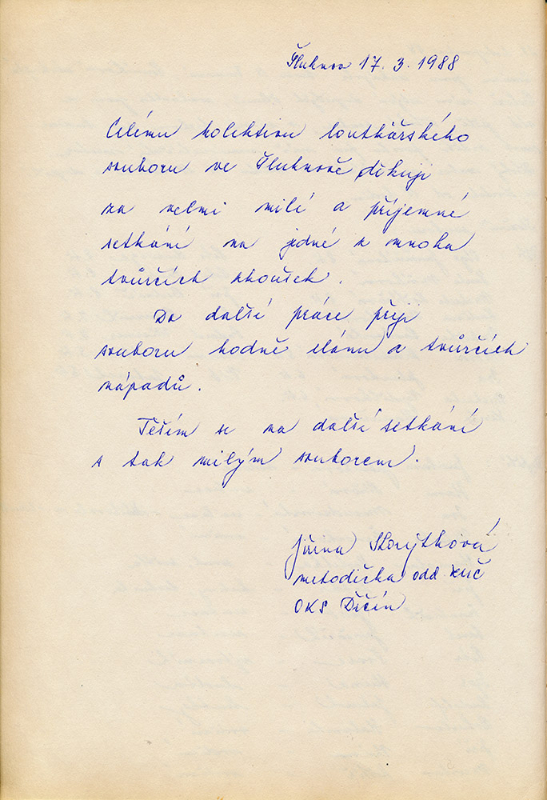 Šluknov 17. 3. 1988
Celému kolektivu loutkářského
souboru ve Šluknově děkuji
za velmi milé a příjemné
setkání na jedné z mnoha
tvůrčích zkoušek.
Do další práce přeji
souboru hodně elánu a tvůrčích
nápadů.
Těším se na další setkání
s tak milým souborem.
Jiřina
metodička odd ZUČ
OKS Děčín